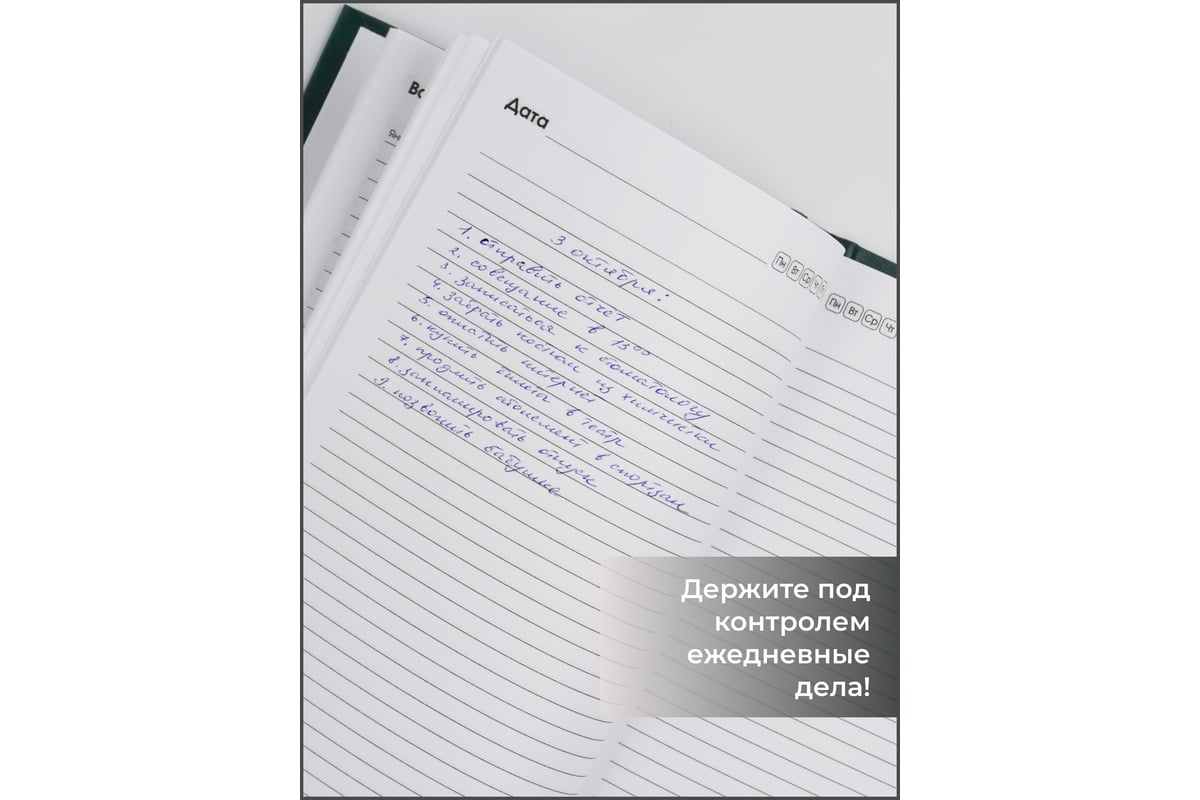 Во
Янв
Дата
Пн Вт Ср Ч
Пн Вт Ср Чт
3 октября:
1. отправить отчет
2. совещание в 13 00
3. записаться к стоматологу
4. забрать костюм из химчистки
5. оплатить интернет
6. купить билеты в театр
7. продлить абонемент в спортзал
8. запланировать отпуск
9. позвонить бабушке
Держите под
контролем
ежедневные
дела!